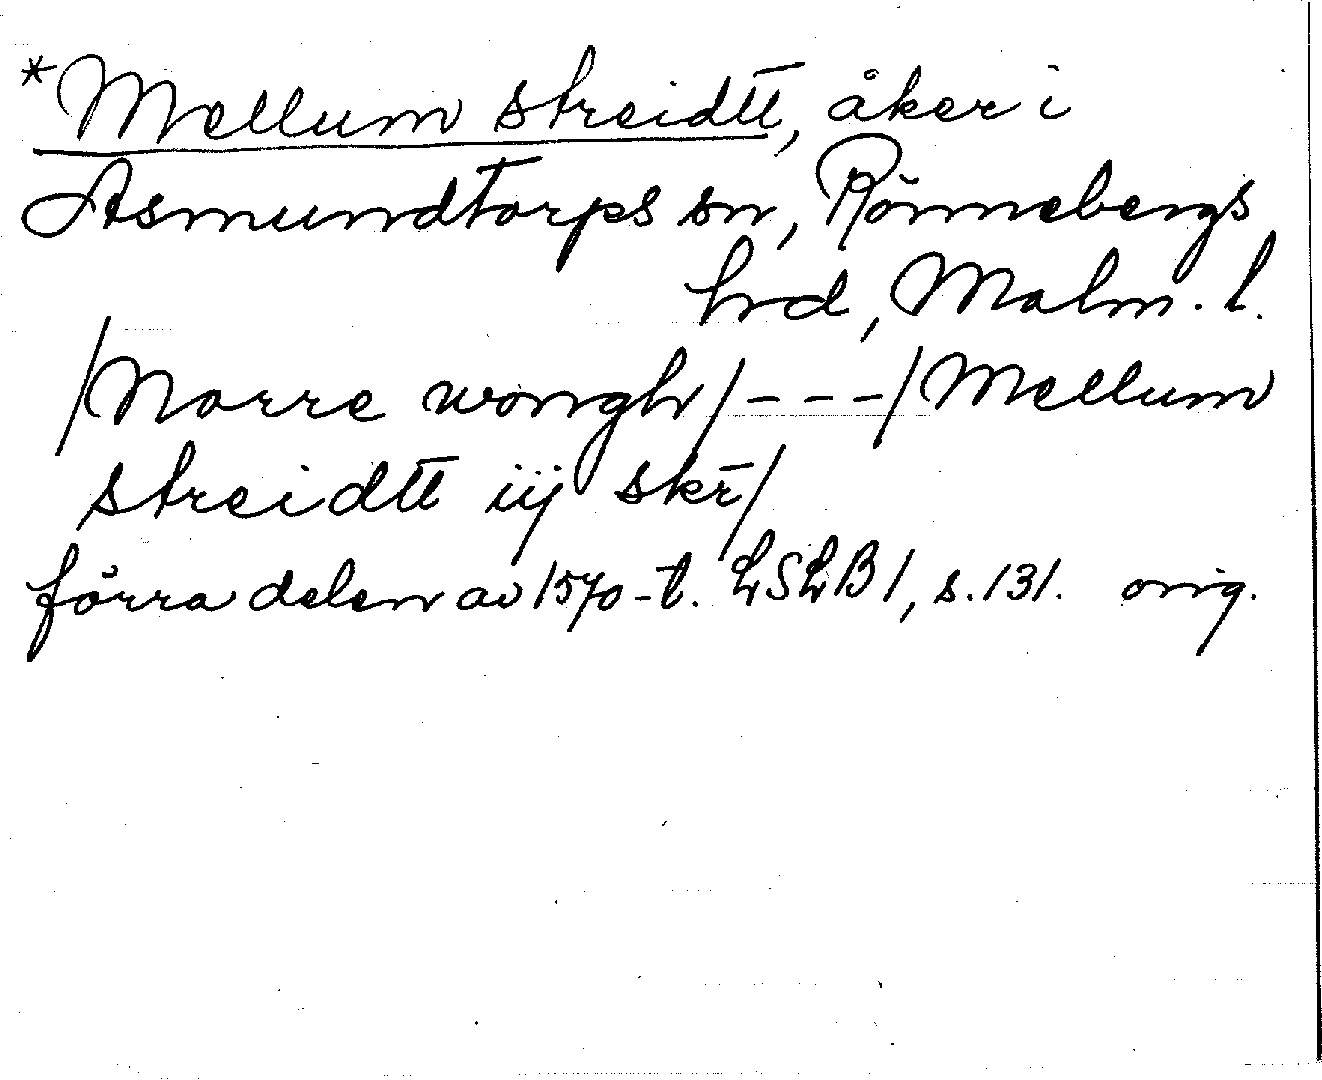 *Mellum streidtt, åker i
Asmundtorps sn, Rönnebergs
hrd, Malm. l.
/Norre wongh/ - - - /Mellum
streidtt iij skr̄/
förra delen av 1570-t. LSLB1, s. 131. orig.